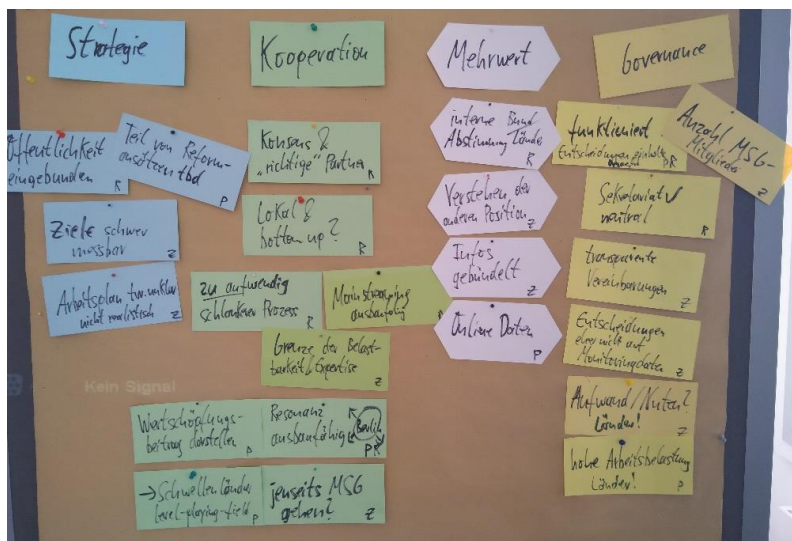 Strategie
Öffentlichkeit
eingebunden
R
Teil von Reform-
ansätzen tbd
P
Ziele schwer
messbar
Z
Arbeitsplan
nicht realistisch
Z
Kooperation
Konsens &
"richtige" Partner
R
Lokal &
bottom up?
R
zu aufwendig
schlankerer Prozess
R
Mainstreaming
ausbaufähig
R
Grenze der Belast-
barkeit/Expertise
Z
Wertschöpfungs-
beitrag darstellen
P
Resonanz
ausbaufähig
Berlin
PR
→Schwellenländer
level-playing-field
P
jenseits MSG
gehen?
Z
Mehrwert
interne Bund
Abstimmung Länder
R
Verstehen der
anderen Position
Z
Infos
gebündelt
Z
Online Daten
P
Governance
funktioniert
Entscheidungen
PR
Anzahl MSG-
Mitglieder
Z
Sekretariat ✓
neutral
R
transparente
Vereinbarungen
Z
Entscheidungen
eher nicht auf
Monitoringdaten
Z
Aufwand/Nutzen?
Länder!
Z
hohe Arbeitsbelastung
Länder!
P
Kein Signal